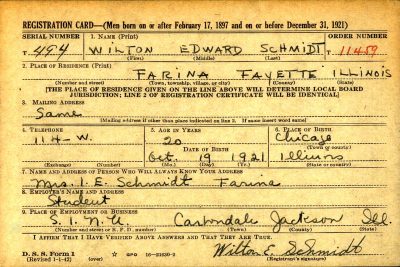 REGISTRATION CARD—(Men born on or after February 17, 1897 and on or before December 31, 1921)
SERIAL NUMBER 1. NAME (Print) ORDER NUMBER
T 494 WILTON EDWARD SCHMIDT T 11459
(First) (Middle) (Last)
2. PLACE OF RESIDENCE (Print)
FARINA FAYETTE ILLINOIS
(Number and street) (Town, township, village, or city) (County) (State)
[THE PLACE OF RESIDENCE GIVEN ON THE LINE ABOVE WILL DETERMINE LOCAL BOARD
JURISDICTION; LINE 2 OF REGISTRATION CERTIFICATE WILL BE IDENTICAL]
3. MAILING ADDRESS
Same
[Mailing address if other than place indicated on line 2. If same insert word same]
4. TELEPHONE 5. AGE IN YEARS 6. PLACE OF BIRTH
114-W. 20 Chicago
DATE OF BIRTH (Town or county)
Oct. 19 1921 Illinois
(Exchange) (Number) (Mo.) (Day) (Yr.) (State or country)
7. NAME AND ADDRESS OF PERSON WHO WILL ALWAYS KNOW YOUR ADDRESS
Mrs. I. E. Schmidt Farina
8. EMPLOYER'S NAME AND ADDRESS
Student
9. PLACE OF EMPLOYMENT OR BUSINESS
S. I. N. U. Carbondale Jackson Ill.
(Number and street or R. F. D. number) (Town) (County) (State)
I AFFIRM THAT I HAVE VERIFIED ABOVE ANSWERS AND THAT THEY ARE TRUE.
D. S. S. Form 1
(Revised 1-1-42) (over) GPO 16-21630-2
Wilton E. Schmidt
(Registrant's signature)